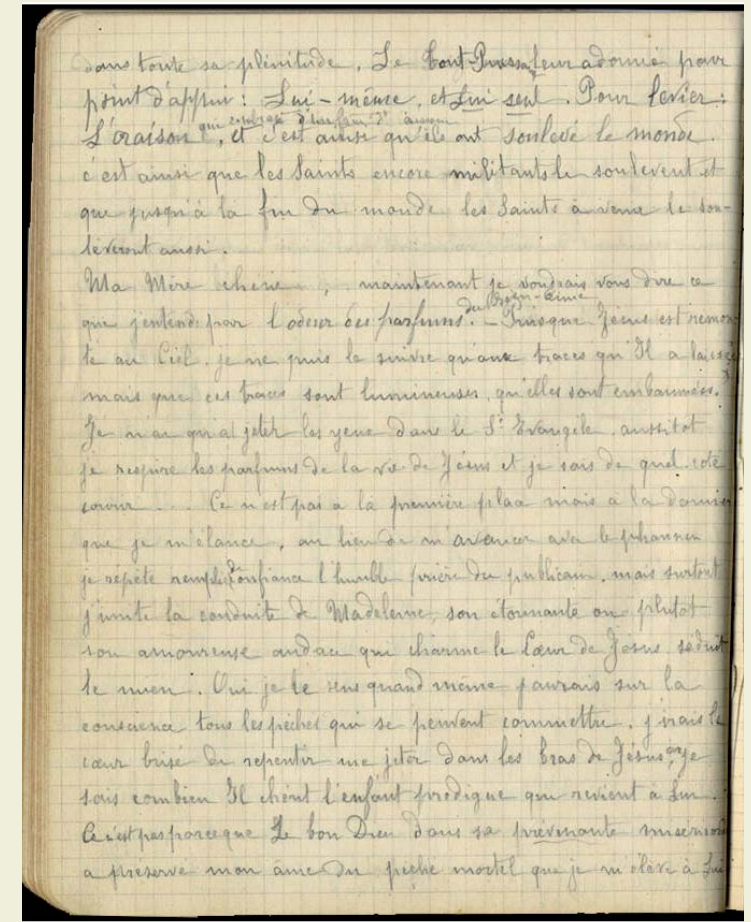 dans toute sa plénitude. Le Tout-Puissant leur a donné pour
point d'appui : Lui-même, et Lui seul. Pour levier :
L'oraison, qui embrase d'un feu d'amour, et c'est ainsi qu'ils ont soulevé le monde.
c'est ainsi que les Saints encore militants le soulèvent et
que jusqu'à la fin du monde les Saints à venir le sou-
lèveront aussi.
Ma Mère chérie, maintenant je voudrais vous dire ce
que j'entends par l'odeur des parfums du Bien-Aimé. - Puisque Jésus est remon-
té au Ciel, je ne puis le suivre qu'aux traces qu'Il a laissées
mais que ces traces sont lumineuses, qu'elles sont embaumées.
Je n'ai qu'à jeter les yeux dans le St Evangile, aussitôt
je respire les parfums de la vie de Jésus et je sais de quel côté
courir... Ce n'est pas à la première place mais à la dernière
que je m'élance, au lieu de m'avancer avec le pharisien
je répète, remplie de confiance l'humble prière du publicain, mais surtout
j'imite la conduite de Madeleine, son étonnante ou plutôt
son amoureuse audace qui charme le Cœur de Jésus, séduit
le mien. Oui je le sens quand même j'aurais sur la
conscience tous les péchés qui se peuvent commettre, j'irais le
cœur brisé de repentir me jeter dans les bras de Jésus, car je
sais combien Il chérit l'enfant prodigue qui revient à Lui.
Ce n'est pas parce que le bon Dieu dans sa prévenante miséricorde
a préservé mon âme du péché mortel que je m'élève à Lui